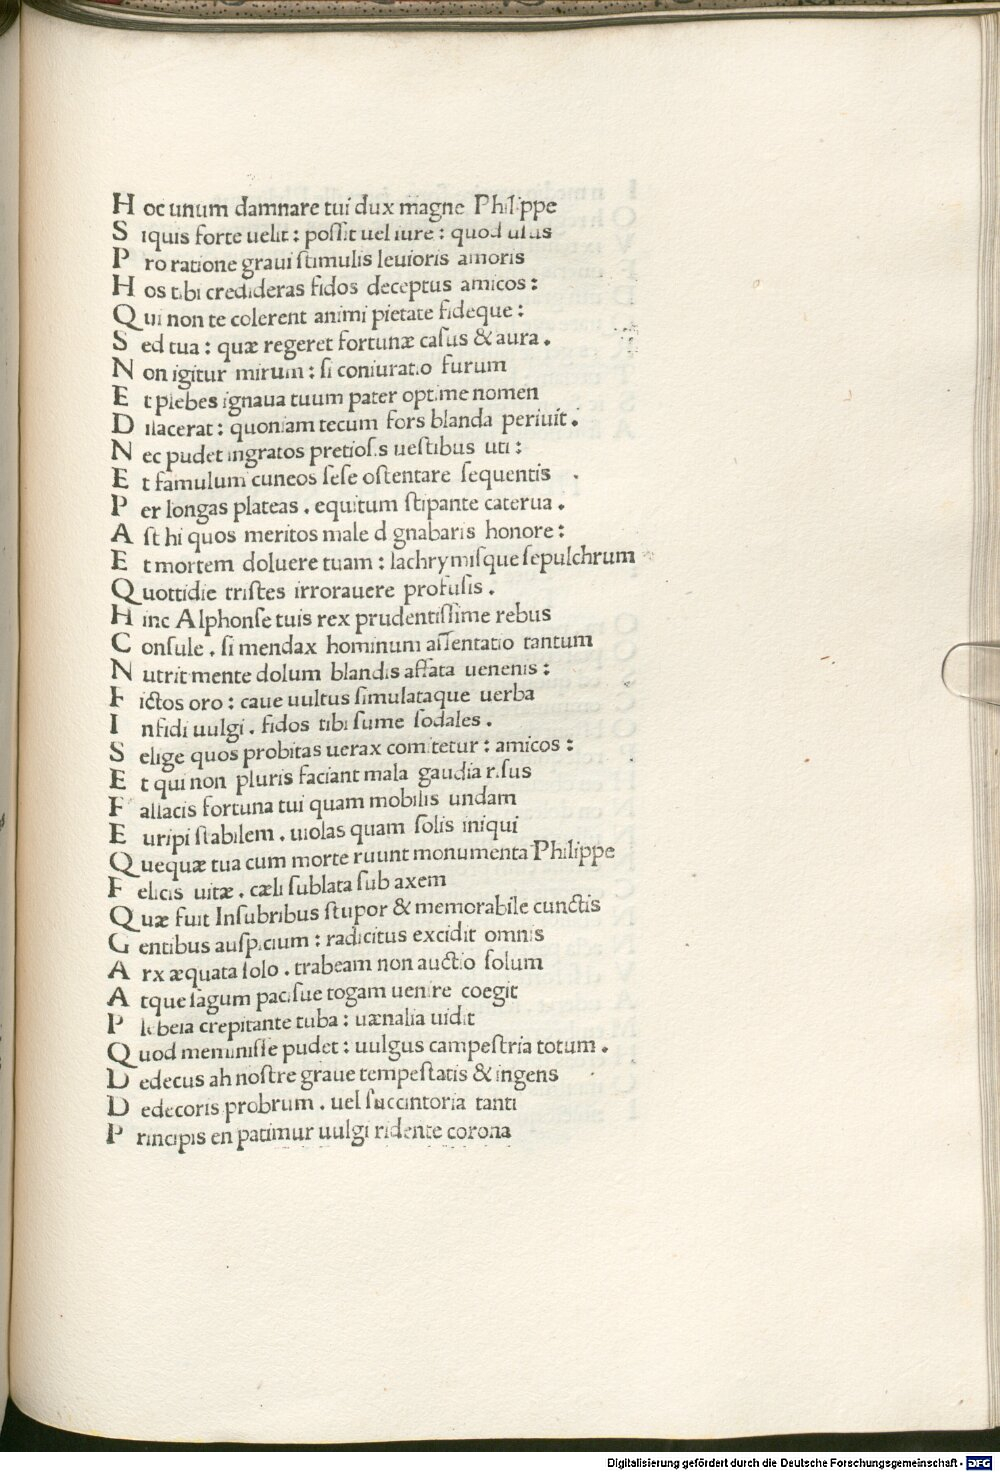 Hoc unum damnare tui dux magne Philippe
Siquis forte uelit : possit uel iure : quod usus
Pro ratione graui stimulis leuioris amoris
Hos tibi credideras fidos deceptus amicos :
Qui non te colerent animi pietate fideque :
Sed tua : quæ regeret fortunæ casus & aura .
Non igitur mirum : si coniuratio furum
Et plebes ignaua tuum pater optime nomen
Dilacerat : quoniam tecum fors blanda periuit .
Nec pudet ingratos pretiosis uestibus uti :
Et famulum cuneos sese ostentare sequentis .
Per longas plateas . equitum stipante caterua .
Ast hi quos meritos male dignabaris honore :
Et mortem doluere tuam : lachrymisque sepulchrum
Quottidie tristes irrorauere profusis .
Hinc Alphonse tuis rex prudentissime rebus
Consule . si mendax hominum assentatio tantum
Nutrit mente dolum blandis affata uenenis :
Fictos oro : caue uultus simulataque uerba
Infidi uulgi . fidos tibi sume sodales .
Selige quos probitas uerax comitetur : amicos :
Et qui non pluris faciant mala gaudia risus
Fallacis fortuna tui quam mobilis undam
Euripi stabilem . uiolas quam solis iniqui
Quequæ tua cum morte ruunt monumenta Philippe
Felicis uitæ . cæli sublata sub axem
Quæ fuit Insubribus stupor & memorabile cunctis
Gentibus auspicium : radicitus excidit omnis
Arx æquata solo . trabeam non auctio solum
Atque sagum pacisue togam uenire coegit
Plebeia crepitante tuba : uænalia uidit
Quod meminisse pudet : uulgus campestria totum .
Dedecus ah nostre graue tempestatis & ingens
Dedecoris probrum . uel succintoria tanti
Principis en patimur uulgi ridente corona
Digitalisierung gefördert durch die Deutsche Forschungsgemeinschaft - DFG